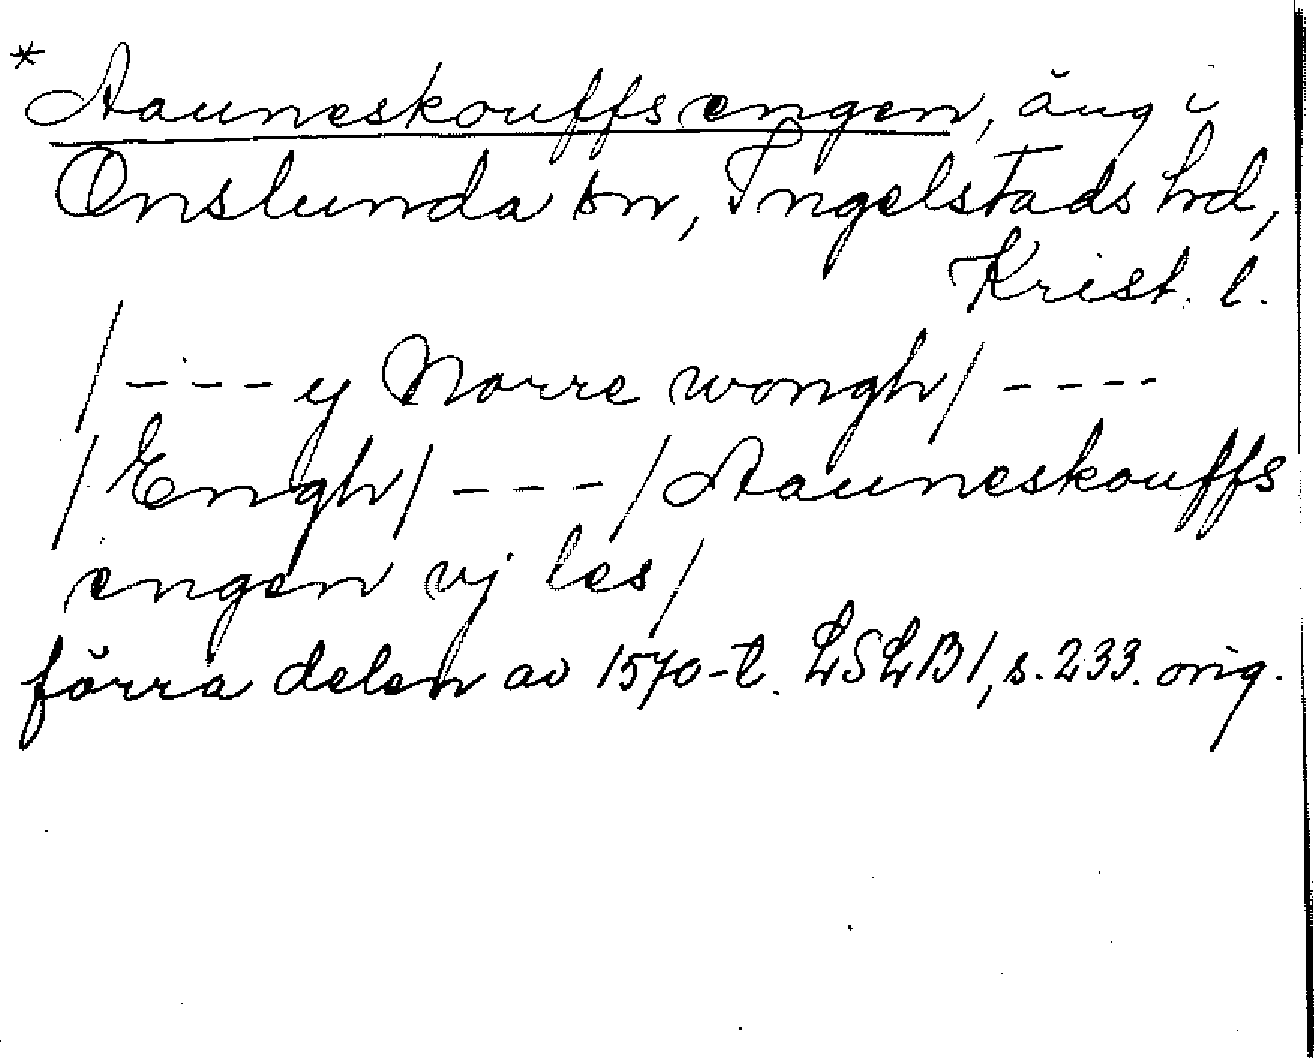 *Aauneskouffs engen, äng i
Onslunda sn, Ingelstads hd,
Krist. l.
/---y Norre wongh/----
/Engh/---/Aauneskouffs
engen vj les/
förra delen av 1570-t. LSLB1, s. 233. orig.